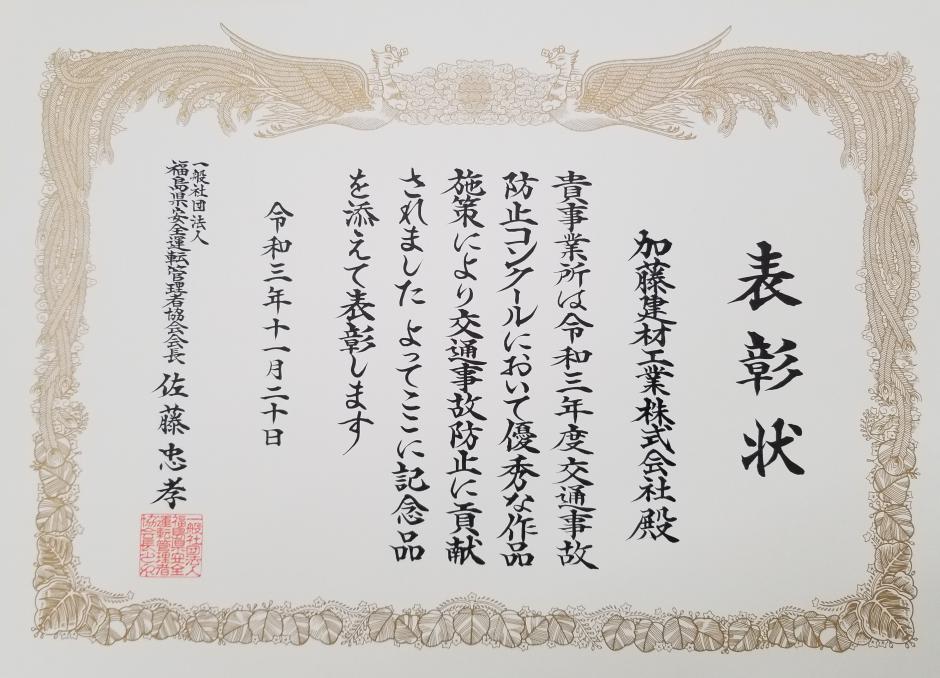 表彰状
加藤建材工業株式会社 殿
貴事業所は令和三年度交通事故
防止コンクールにおいて優秀な作品
施策により交通事故防止に貢献
されました よってここに記念品
を添えて表彰します
令和三年十一月二十日
一般社団法人
福島県安全運転管理者協会会長 佐藤忠孝
一般社団法人
福島県安全
運転管理者
協会長之印